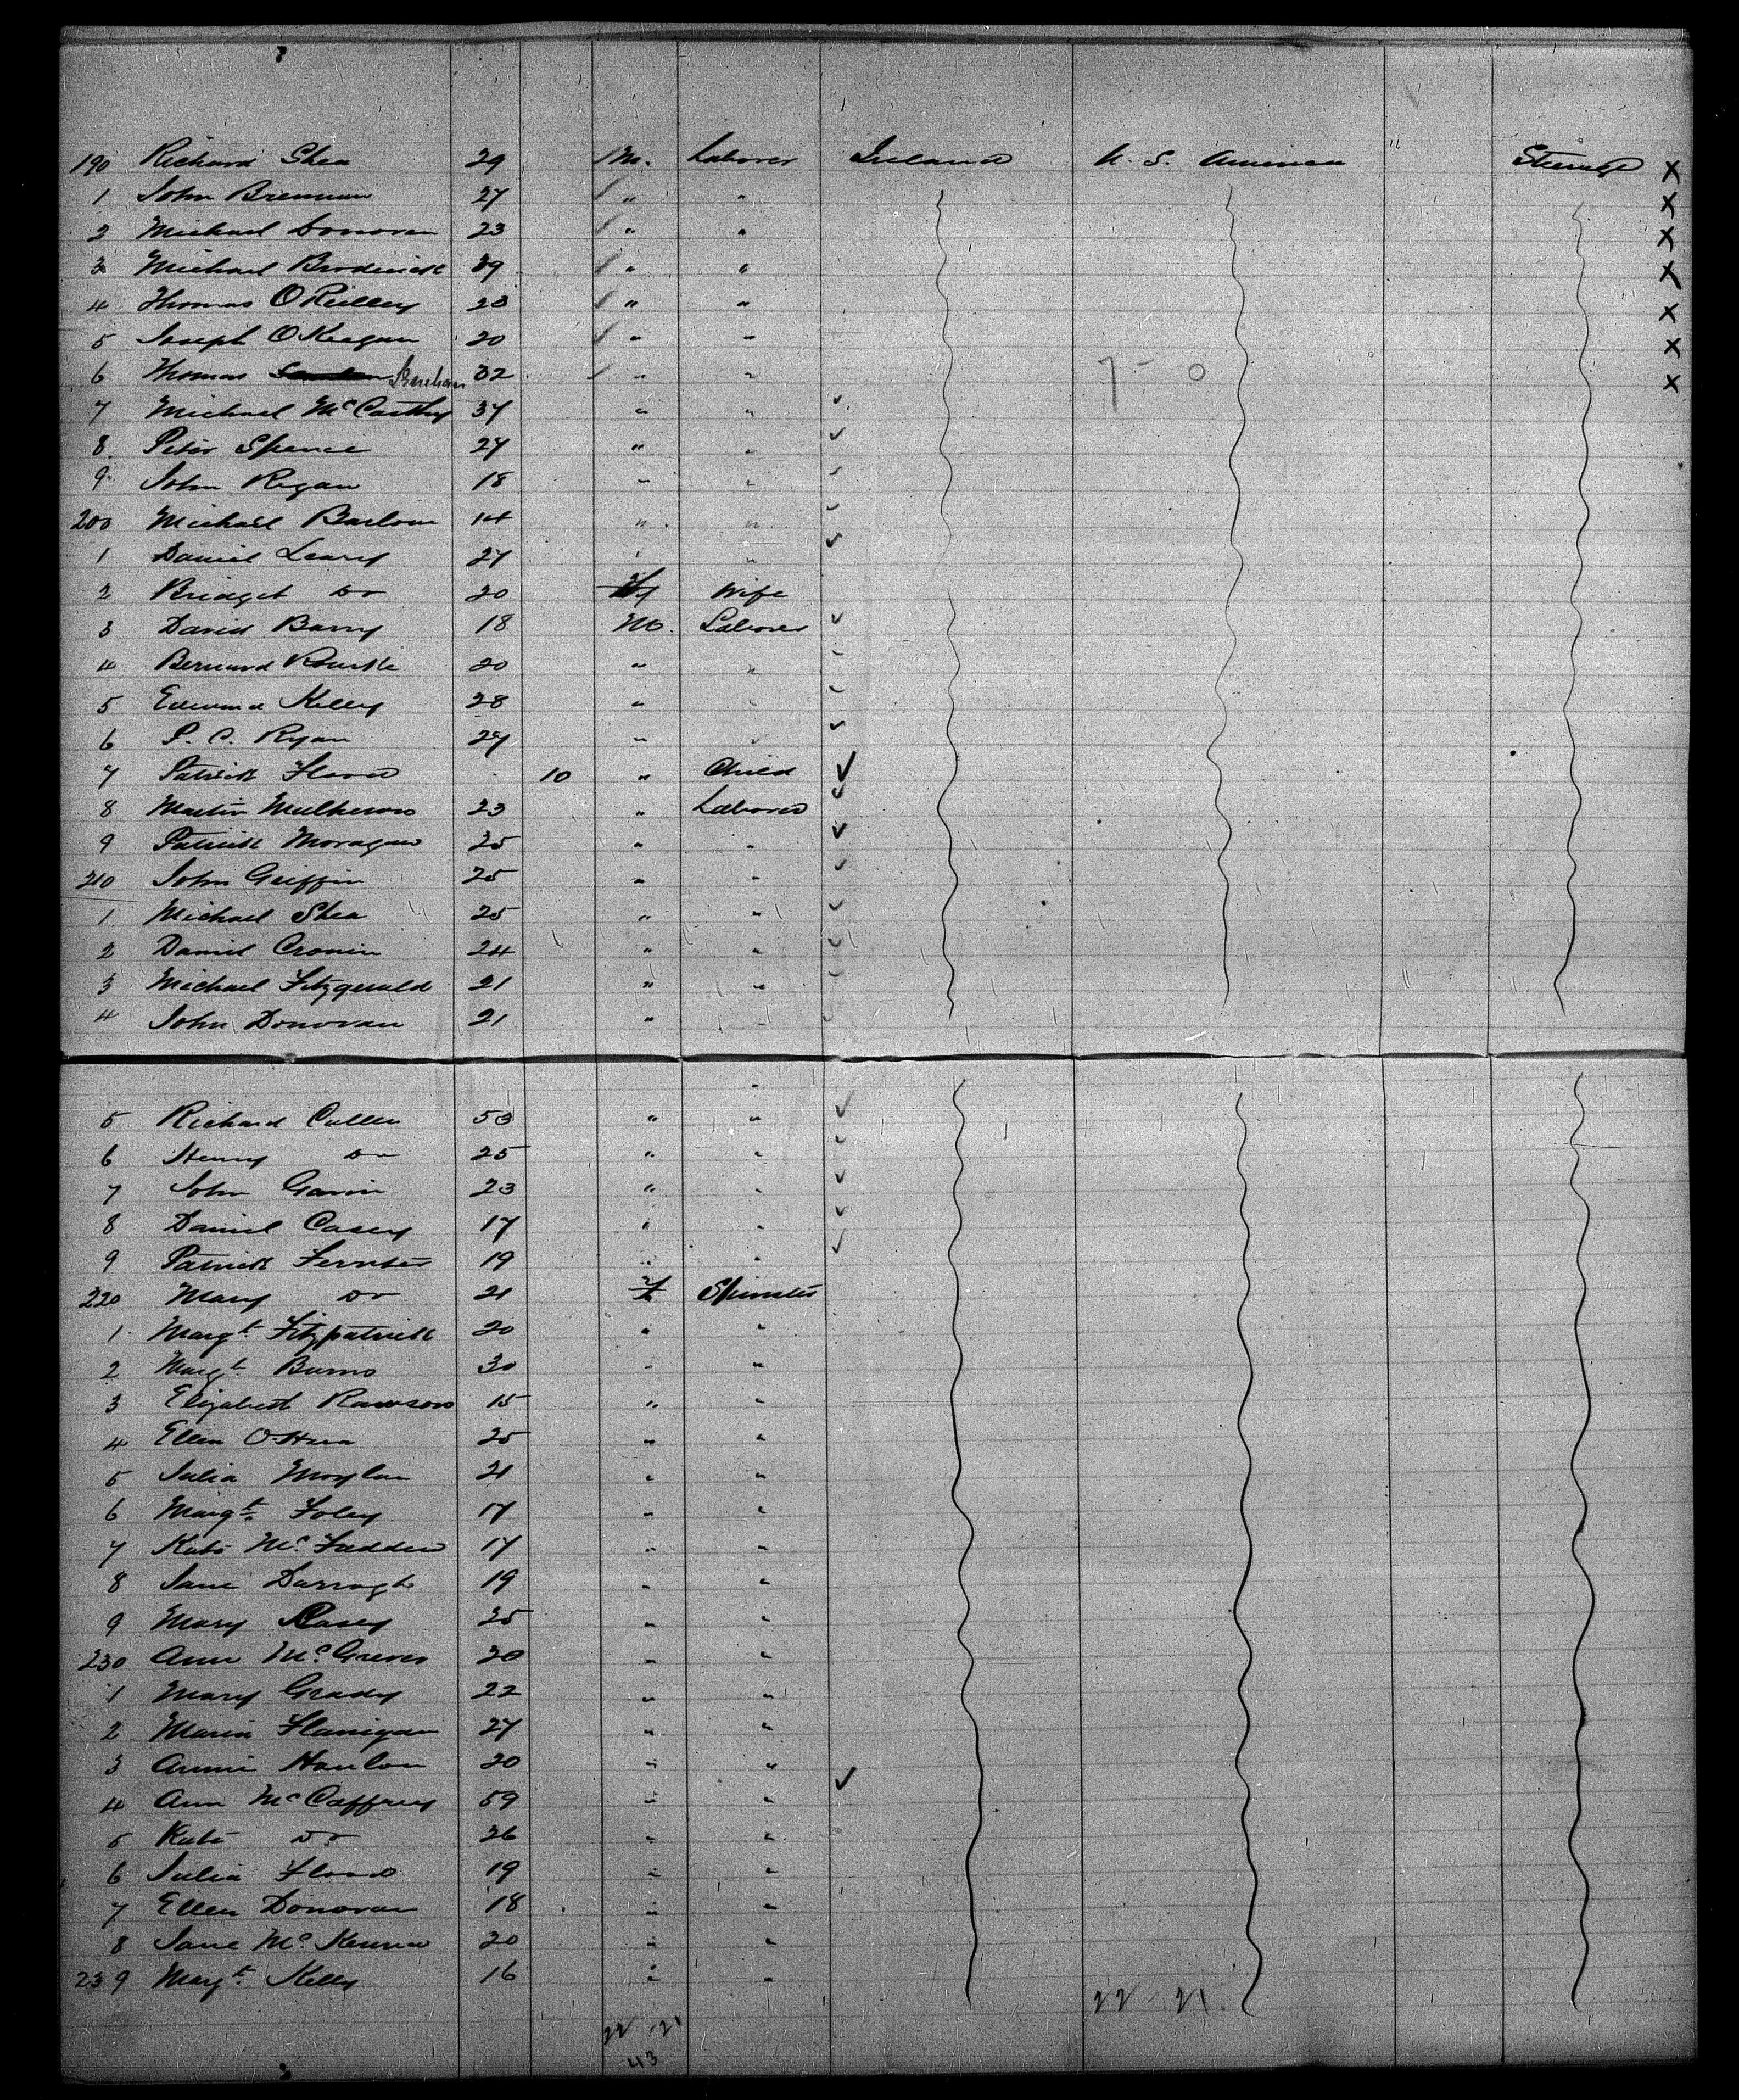 190 Richard Shea 29 M. Laborer Ireland U. S. America Steerage X
1 John Brennan 27 " " X
2 Michael Donovan 23 " " X
3 Michael Broderick 39 " " X
4 Thomas O'Reilley 23 " " X
5 Joseph O'Keegan 20 " " X
6 Thomas 32 " " 7 - 0 X
7 Michael McCarthy 37 " " ✓
8 Peter Spence 27 " " ✓
9 John Regan 18 " " ✓
200 Michael Barlow 14 " " ✓
1 Daniel Leary 27 " " ✓
2 Bridget Do 20 f Wife
3 David Barry 18 M. Laborer ✓
4 Bernard Rourke 20 " " ✓
5 Edmund Kelly 28 " " ✓
6 P. C. Ryan 27 " " ✓
7 Patrick Flood 10 " Child ✓
8 Martin 23 " Laborer ✓
9 Patrick Moragan 35 " " ✓
210 John Griffin 25 " " ✓
1 Michael Shea 25 " " ✓
2 Daniel Cronin 24 " " ✓
3 Michael Fitzgerald 21 " " ✓
4 John Donovan 21 " " ✓
5 Richard Cullen 53 " " ✓
6 Henry Do 25 " " ✓
7 John Gavin 23 " " ✓
8 Daniel Casey 17 " " ✓
9 Patrick 19 " " ✓
220 Mary Do 21 f Spinster
1 Margt Fitzpatrick 20 " "
2 Margt Burns 30 " "
3 Elizabeth Rawson 15 " "
4 Ellen O'Hara 25 " "
5 Julia Moylan 21 " "
6 Margt Foley 17 " "
7 Kate McFadden 17 " "
8 Jane Darragh 19 " "
9 Mary Casey 25 " "
230 Ann McGreevy 20 " "
1 Mary Grady 22 " "
2 Maria Flanigan 27 " "
3 Annie Hanlon 20 " "
4 Ann McCaffrey 59 " " ✓
5 Kate Do 26 " "
6 Julia Flood 19 " "
7 Ellen Donovan 18 " "
8 Jane McKenna 20 " "
239 Margt Kelly 16 " "
22 - 21
22 - 21
43